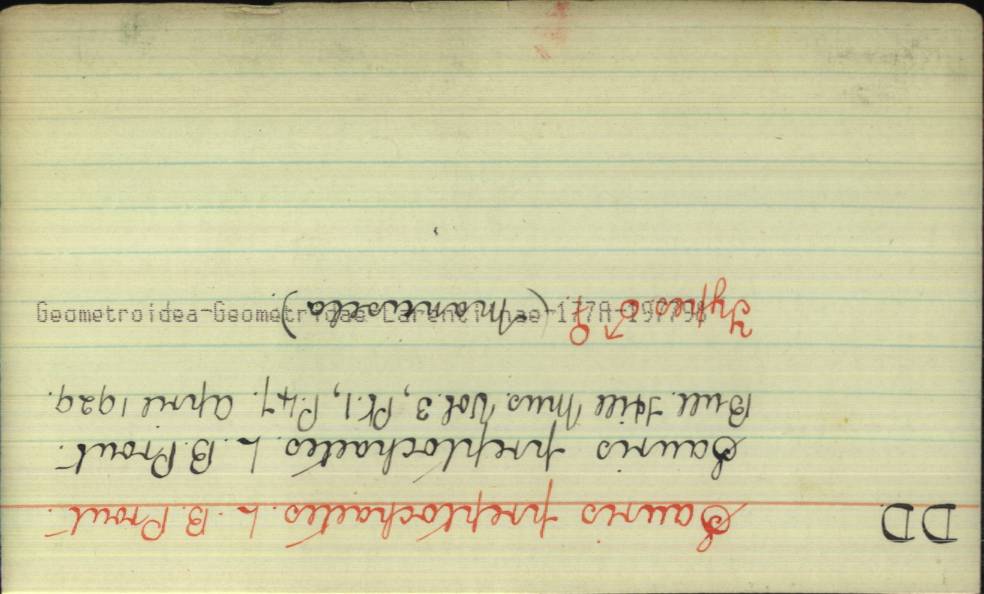 DD Sauris preptochaetes. L. B. Prout.
Sauris preptochaetes. L. B. Prout.
Bull. Hill Mus. Vol. 3, Pt. 1, P. 47. April 1929.
Types ♂ ♀. (Manusela).
Geometroidea-Geometridae-Larentiinae-